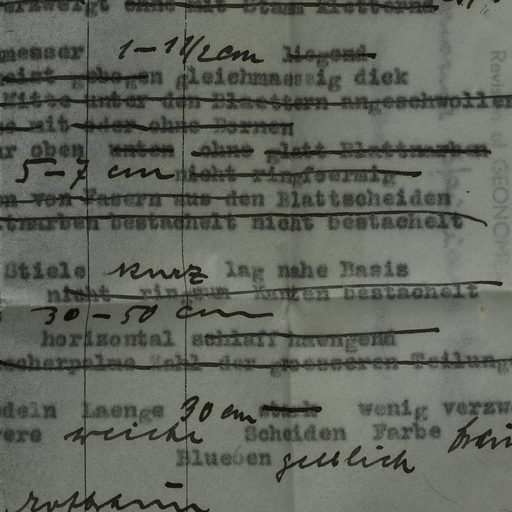 verzweigt ohne mit Stamm kletternd
messer 1-1 1/2 cm liegend
gebogen gleichmaessig dick
Mitte unter den Blaettern angeschwollen
mit oder ohne Dornen
oben unten ohne glatt Blattnarben
5-7 cm nicht ringfoermig
von Fasern aus den Blattscheiden
bestachelt nicht bestachelt
Stiele kurz lag nahe Basis
nicht ringsum Kanten bestachelt
30-50 cm
horizontal schlaff haengend
Zahl der groesseren Teilung
Laenge 30 cm wenig verzw
weiche Scheiden Farbe
Blueten gelblich
rotbraun